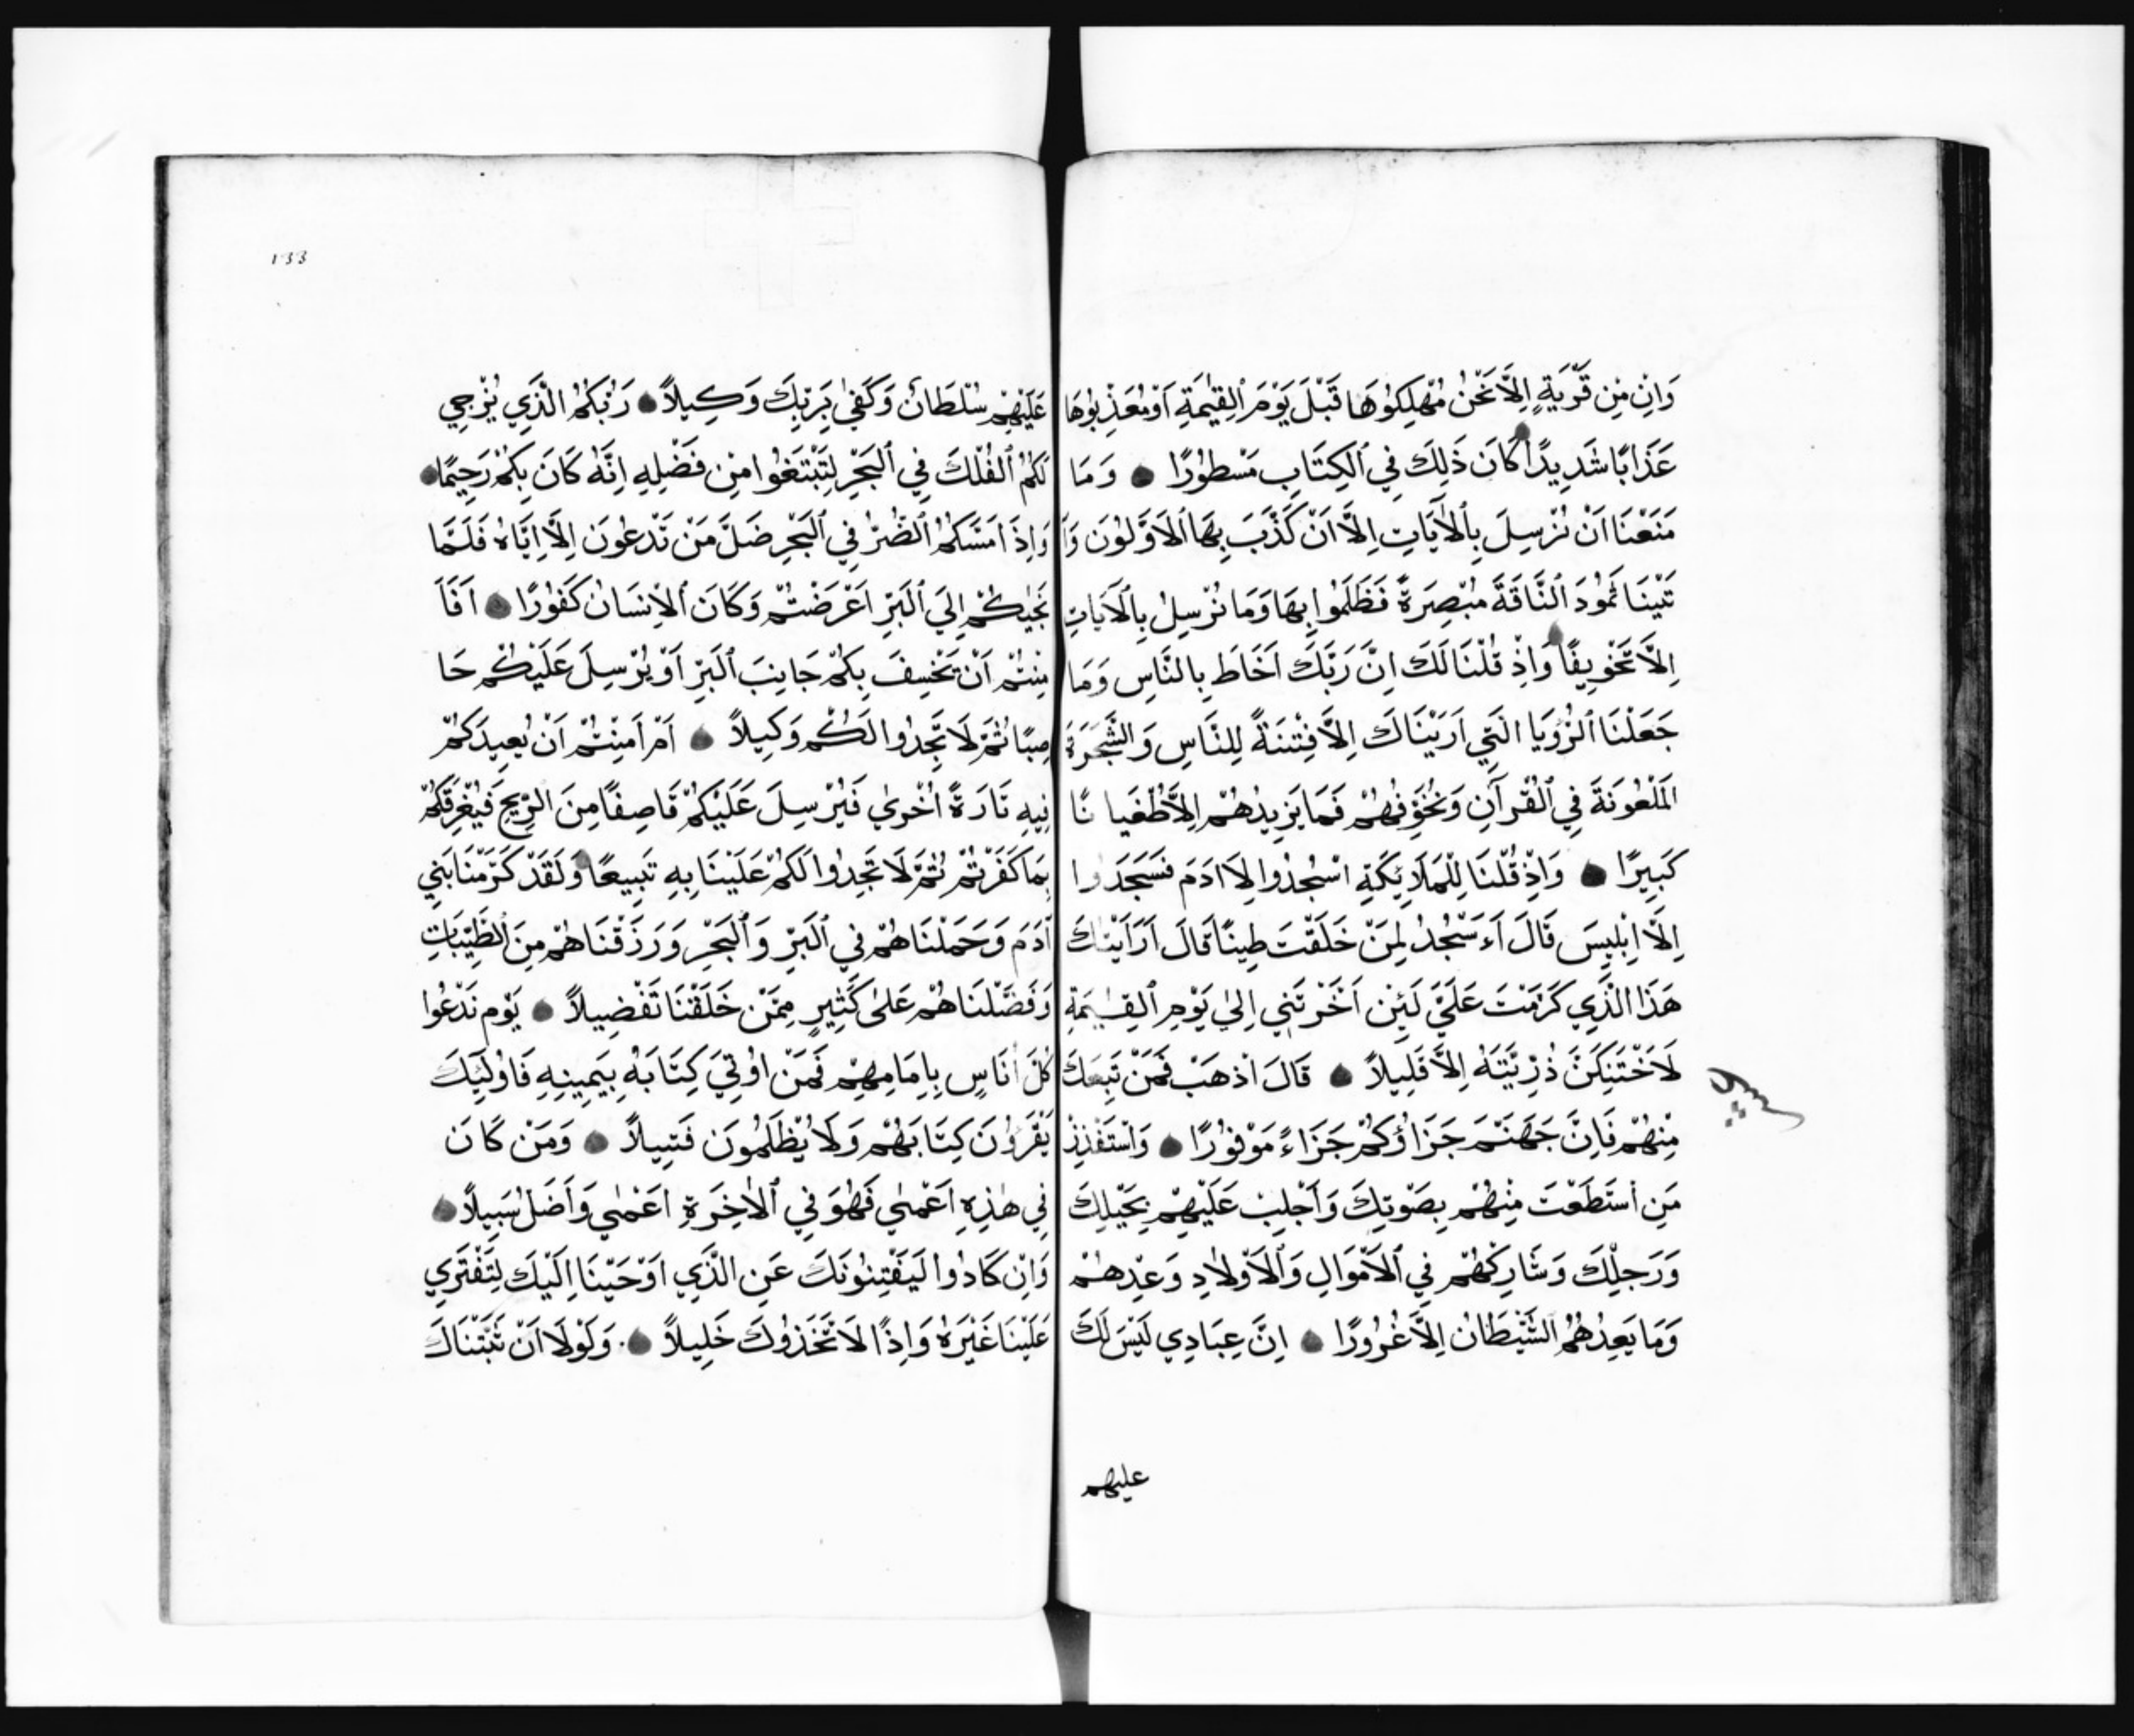 وَاِنْ مِنْ قَرْيَةٍ اِلَّا نَحْنُ مُهْلِكُوهَا قَبْلَ يَوْمِ ٱلْقِيٰمَةِ اَوْ مُعَذِّبُوهَا
عَذَابًا شَدِيدًا كَانَ ذَلِكَ فِي ٱلْكِتَابِ مَسْطُورًا وَمَا
مَنَعْنَا اَنْ نُرْسِلَ بِٱلْاٰيَاتِ اِلَّا اَنْ كَذَّبَ بِهَا ٱلْاَوَّلُونَ وَاٰ
تَيْنَا ثَمُودَ ٱلنَّاقَةَ مُبْصِرَةً فَظَلَمُوا بِهَا وَمَا نُرْسِلُ بِالْاٰيَاتِ
اِلَّا تَخْوِيفًا وَاِذْ قُلْنَا لَكَ اِنَّ رَبَّكَ اَحَاطَ بِالنَّاسِ وَمَا
جَعَلْنَا ٱلرُّؤْيَا الَّتِي اَرَيْنَاكَ اِلَّا فِتْنَةً لِلنَّاسِ وَالشَّجَرَةَ
الْمَلْعُونَةَ فِي ٱلْقُرآنِ وَنُخَوِّفُهُمْ فَمَا يَزِيدُهُمْ اِلَّا طُغْيَا نًا
كَبِيرًا وَاِذْ قُلْنَا لِلْمَلَائِكَةِ اسْجُدُوا لِاَادَمَ فَسَجَدُوا
اِلَّا اِبْلِيسَ قَالَ اَءَسْجُدُ لِمَنْ خَلَقْتَ طِينًا قَالَ اَرَاَيْتَكَ
هَذَا الَّذِي كَرَّمْتَ عَلَيَّ لَئِنْ اَخَّرْتَنِي اِلىٰ يَوْمِ ٱلْقِيٰمَةِ
لَاَحْتَنِكَنَّ ذُرِّيَّتَهُ اِلَّا قَلِيلاً قَالَ اذْهَبْ فَمَنْ تَبِعَكَ
مِنْهُمْ فَاِنَّ جَهَنَّمَ جَزَاؤُكُمْ جَزَاءً مَوْفُورًا وَاسْتَفْزِزْ
مَنِ اسْتَطَعْتَ مِنْهُمْ بِصَوْتِكَ وَاَجْلِبْ عَلَيْهِمْ بِخَيْلِكَ
وَرَجِلِكَ وَشَارِكْهُمْ فِي ٱلْاَمْوَالِ وَٱلْاَوْلَادِ وَعِدْهُمْ
وَمَا يَعِدُهُمُ الشَّيْطَانُ اِلَّا غُرُورًا اِنَّ عِبَادِي لَيْسَ لَكَ
عليهم
133
عَلَيْهِمْ سُلْطَانٌ وَكَفىٰ بِرَبِّكَ وَكِيلاً رَبُّكُمُ الَّذِي يُزْجِي
لَكُمُ ٱلْفُلْكَ فِي ٱلْبَحْرِ لِتَبْتَغُوا مِنْ فَضْلِهِ اِنَّهُ كَانَ بِكُمْ رَحِيمًا
وَاِذَا مَسَّكُمُ ٱلضُّرُّ فِي ٱلْبَحْرِ ضَلَّ مَنْ تَدْعُونَ اِلَّا اِيَّاهُ فَلَمَّا
نَجّٰيكُمْ اِلَي ٱلْبَرِّ اَعْرَضْتُمْ وَكَانَ ٱلْاِنْسَانُ كَفُورًا اَفَاَ
مِنْتُمْ اَنْ يَخْسِفَ بِكُمْ جَانِبَ ٱلْبَرِّ اَوْ يُرْسِلَ عَلَيْكُمْ حَا
صِبًا ثُمَّ لَا تَجِدُوا لَكُمْ وَكِيلاً اَمْ اَمِنْتُمْ اَنْ يُعِيدَكُمْ
فِيهِ تَارَةً اُخْرىٰ فَيُرْسِلَ عَلَيْكُمْ قَاصِفًا مِنَ الرِّيحِ فَيُغْرِقَكُمْ
بِمَا كَفَرْتُمْ ثُمَّ لَا تَجِدُوا لَكُمْ عَلَيْنَا بِهِ تَبِيعًا وَلَقَدْ كَرَّمْنَا بَنِي
اٰدَمَ وَحَمَلْنَاهُمْ فِي ٱلْبَرِّ وَٱلْبَحْرِ وَرَزَقْنَاهُمْ مِنَ ٱلطَّيِّبَاتِ
وَفَضَّلْنَاهُمْ عَلىٰ كَثِيرٍ مِمَّنْ خَلَقْنَا تَفْضِيلاً يَوْمَ نَدْعُوا
كُلَّ اُنَاسٍ بِاِمَامِهِمْ فَمَنْ اُوْتِيَ كِتَابَهُ بِيَمِينِهِ فَاُولٰئِكَ
يَقْرَؤُنَ كِتَابَهُمْ وَلَا يُظْلَمُونَ فَتِيلاً وَمَنْ كَانَ
فِي هٰذِهِ اَعْمىٰ فَهُوَ فِي ٱلْاٰخِرَةِ اَعْمىٰ وَاَضَلُّ سَبِيلاً
وَاِنْ كَادُوا لَيَفْتِنُونَكَ عَنِ الَّذِي اَوْحَيْنَا اِلَيْكَ لِتَفْتَرِي
عَلَيْنَا غَيْرَهُ وَاِذًا لَاتَّخَذُوكَ خَلِيلاً وَلَوْلَا اَنْ ثَبَّتْنَاكَ